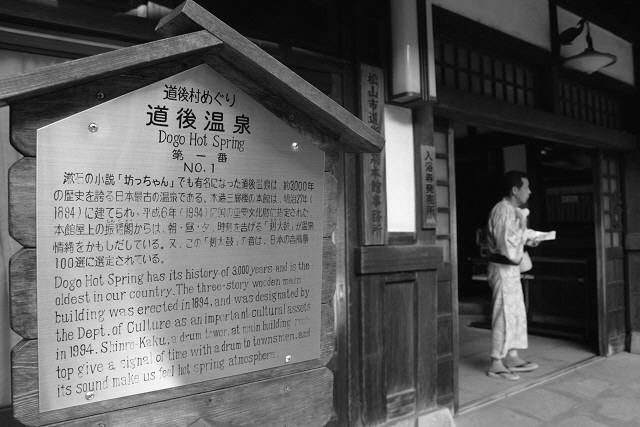 道後村めぐり
道後温泉
Dogo Hot Spring
第一番
NO.1
漱石の小説「坊っちゃん」でも有名になった道後温泉は、約3000年
の歴史を誇る日本最古の温泉である。木造三層楼の本館は、明治27年
(1894)に建てられ、平成6年(1994)に国の重要文化財に指定された。
本館屋上の振鷺閣からは、朝・昼・夕、時刻を告げる「刻太鼓」が温泉
情緒をかもしだしている。又、この「刻太鼓」の音は、日本の音風景
100選に選定されている。
Dogo Hot Spring has its history of 3,000 years and is the
oldest in our country. The three-story wooden main
building was erected in 1894, and was designated by
the Dept. of Culture as an important cultural assets
in 1994. Shinro-Kaku, a drum tower, at main building roof
top give a signal of time with a drum to townsmen, and
its sound make us feel hot spring atmosphere.
松山市道後温泉本館事務所
入浴券発売所